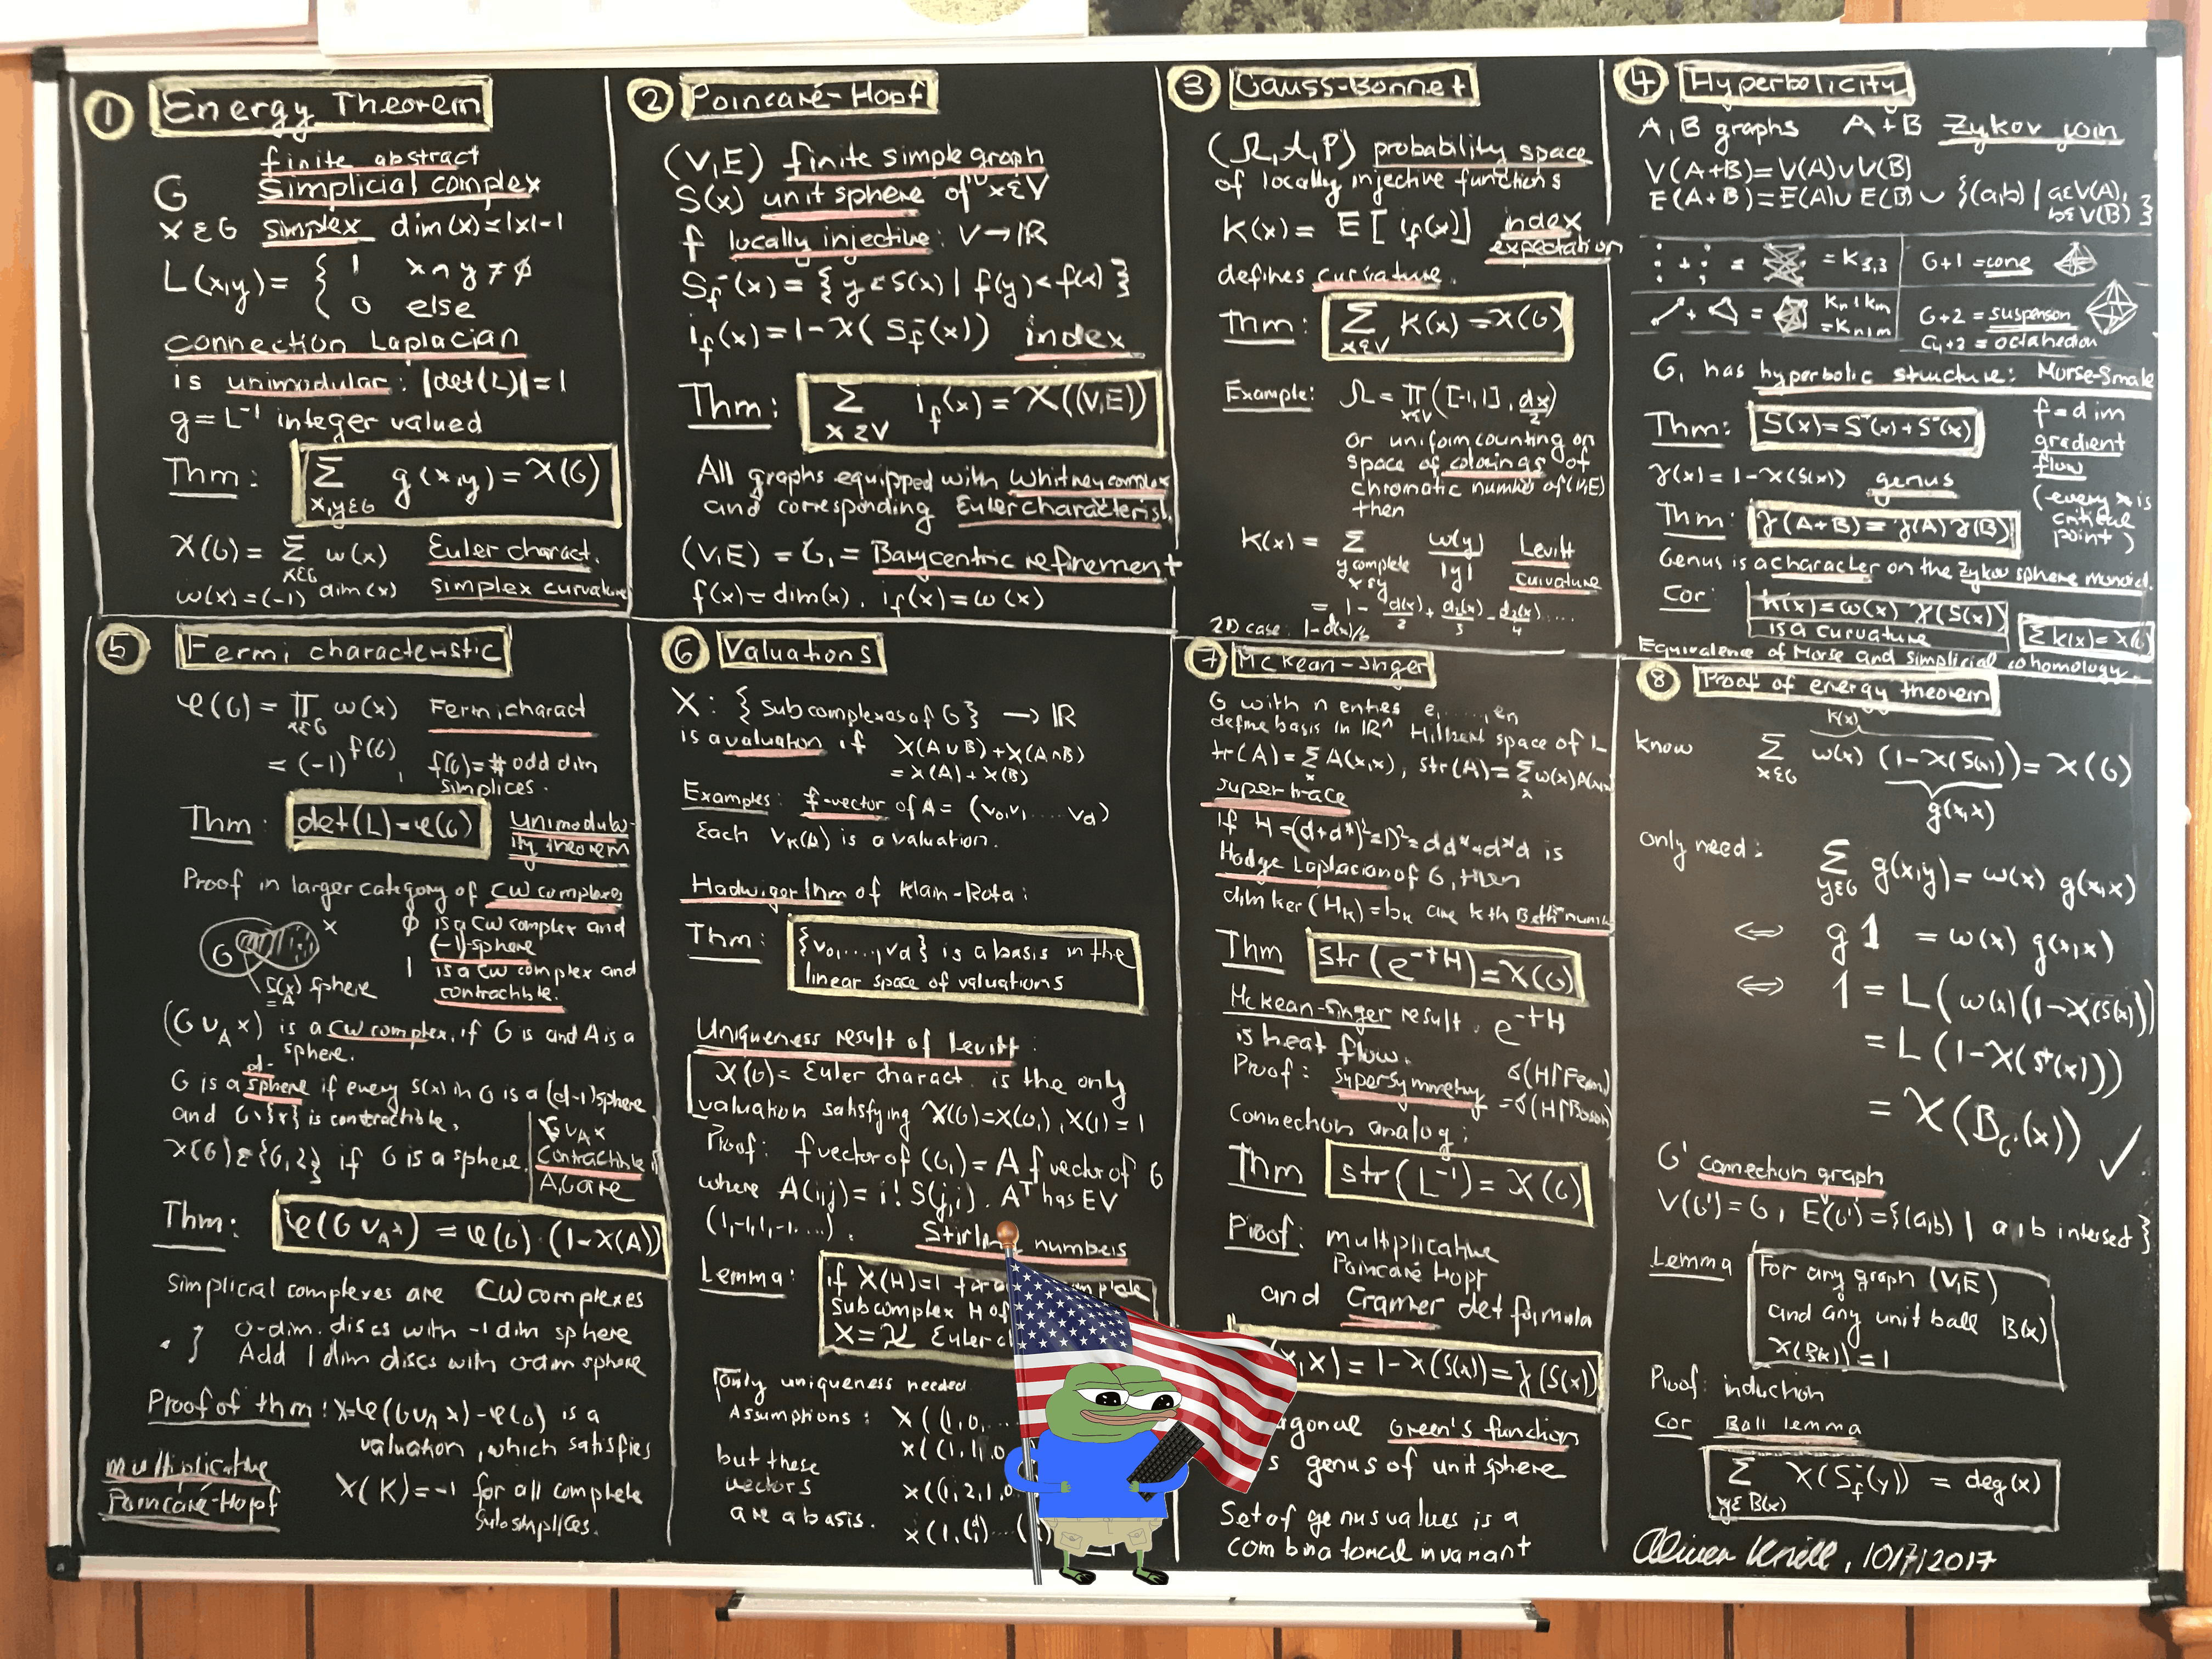 ① Energy Theorem
finite abstract
G simplicial complex
x ∈ G simplex dim(x)=|x|-1
L(x,y) = { 1 x ∩ y ≠ ∅
0 else
connection Laplacian
is unimodular: |det(L)|=1
g = L⁻¹ integer valued
Thm: Σ g(x,y) = χ(G)
x,y∈G
χ(G) = Σ ω(x) Euler charact.
x∈G
ω(x)=(-1)^dim(x) simplex curvature
② Poincaré-Hopf
(V,E) finite simple graph
S(x) unit sphere of x∈V
f locally injective: V→ℝ
S_f⁻(x) = { y ∈ S(x) | f(y) < f(x) }
i_f(x) = 1-χ( S_f⁻(x)) index
Thm: Σ i_f(x) = χ((V,E))
x∈V
All graphs equipped with Whitney complex
and corresponding Euler characterist.
(V,E) = G₁ = Barycentric refinement
f(x) = dim(x), i_f(x) = ω(x)
③ Gauss-Bonnet
(Ω,A,P) probability space
of locally injective functions
K(x) = E[ i_f(x)] index
expectation
defines curvature.
Thm: Σ K(x) = χ(G)
x∈V
Example: Ω = Π ([-1,1], dx/2)
x∈V
or uniform counting on
space of colorings of
chromatic number of (V,E)
then
K(x) = Σ ω(y)/|y| Levitt
y complete
x ≤ y curvature
= 1 - d(x)/2 + d₂(x)/3 - d₃(x)/4 ....
2D case: 1-d(x)/6
④ Hyperbolicity
A,B graphs A+B Zykov join
V(A+B)=V(A)∪V(B)
E(A+B)=E(A)∪E(B) ∪ {(a,b) | a∈V(A),
b∈V(B) }
= K₃,₃ G+1 = cone
Kn+Km
=Kn+m
G+2 = suspension
C₄+2 = octahedron
G₁ has hyperbolic structure: Morse-Smale
Thm: S(x) = S⁻(x) + S⁺(x)
f = dim
gradient
flow
(every x is
critical
point)
γ(x) = 1-χ(S(x)) genus
Thm: γ(A+B) = γ(A) γ(B)
Genus is a character on the Zykov sphere monoid.
Cor: K(x)=ω(x) χ(S(x))
is a curvature Σ K(x) = χ(G)
Equivalence of Morse and simplicial cohomology.
⑤ Fermi characteristic
φ(G) = Π ω(x) Fermi charact
x∈G
= (-1)^f(G), f(G) = # odd dim
simplices.
Thm: det(L) = φ(G) Unimodular-
ity theorem
Proof in larger category of CW complexes
G x S(x) sphere
= A
∅ is a CW complex and
(-1)-sphere
1 is a CW complex and
contractible.
(G ∪_A x) is a CW complex, if G is and A is a
sphere.
G is a d-sphere if every S(x) in G is a (d-1) sphere
and G\{x} is contractible.
χ(G)∈{0,2} if G is a sphere.
G∪_A x
contractible if
A,G are
Thm: φ(G ∪_A x) = φ(G) · (1-χ(A))
Simplicial complexes are CW complexes
0-dim. discs with -1 dim sphere
Add 1 dim discs with 0 dim sphere
Proof of thm: χ=φ(G∪_A x) - φ(G) is a
valuation, which satisfies
multiplicative
Poincaré-Hopf
χ(K)=-1 for all complete
subsimplices.
⑥ Valuations
X: {subcomplexes of G} → ℝ
is a valuation if X(A∪B)+X(A∩B)
= X(A) + X(B)
Examples: f-vector of A = (v₀,v₁ .... v_d)
Each v_k(A) is a valuation.
Hadwiger thm of Klain-Rota:
Thm: {v₀,....,v_d} is a basis in the
linear space of valuations
Uniqueness result of Levitt:
χ(G) = Euler charact. is the only
valuation satisfying χ(G)=χ(G₁), χ(1) = 1
Proof: f vector of (G₁) = A f vector of G
where A(i,j) = i! S(j,i). Aᵀ has EV
(1,-1,1,-1....).
Stirling numbers
Lemma: if X(H)=1 for
subcomplex H of
X = χ Euler
Only uniqueness needed
Assumptions: X((1,0,
X((1,1,0
but these
vectors X((1,2,1,0
are a basis. X(1,
⑦ McKean-Singer
G with n entries e₁......,e_n
define basis in ℝⁿ Hilbert space of L
tr(A) = Σ A(x,x), str(A) = Σ ω(x)A(x,x)
x x
supertrace
if H=(d+d*)²=D²=dd*+d*d is
Hodge Laplacian of G, then
dim ker(H_k) = b_k are kth Betti numb
Thm str(e^-tH) = χ(G)
McKean-Singer result. e^-tH
is heat flow.
Proof: supersymmetry σ(H|Ferm)
=σ(H|Boson)
Connection analog:
Thm str(L⁻¹) = χ(G)
Proof: multiplicative
Poincaré Hopf
and Cramer det formula
x,x) = 1-χ(S(x)) = γ(S(x))
agonal Green's function
s genus of unit sphere
Set of genus values is a
combinatorial invariant
⑧ Proof of energy theorem
K(x)
know Σ ω(x) (1-χ(S(x))) = χ(G)
x∈G
g(x,x)
only need: Σ g(x,y) = ω(x) g(x,x)
y∈G
⇔ g 1 = ω(x) g(x,x)
⇔ 1 = L( ω(x)(1-χ(S(x)))
= L (1-χ(S⁺(x)))
= χ(B_G'(x)) ✓
G' connection graph
V(G')=G, E(G')={(a,b) | a,b intersect }
Lemma For any graph (V,E)
and any unit ball B(x)
χ(B(x)) = 1
Proof: induction
Cor Ball lemma
Σ χ(S_f⁻(y)) = deg(x)
y∈B(x)
Oliver Knill, 10/7/2017